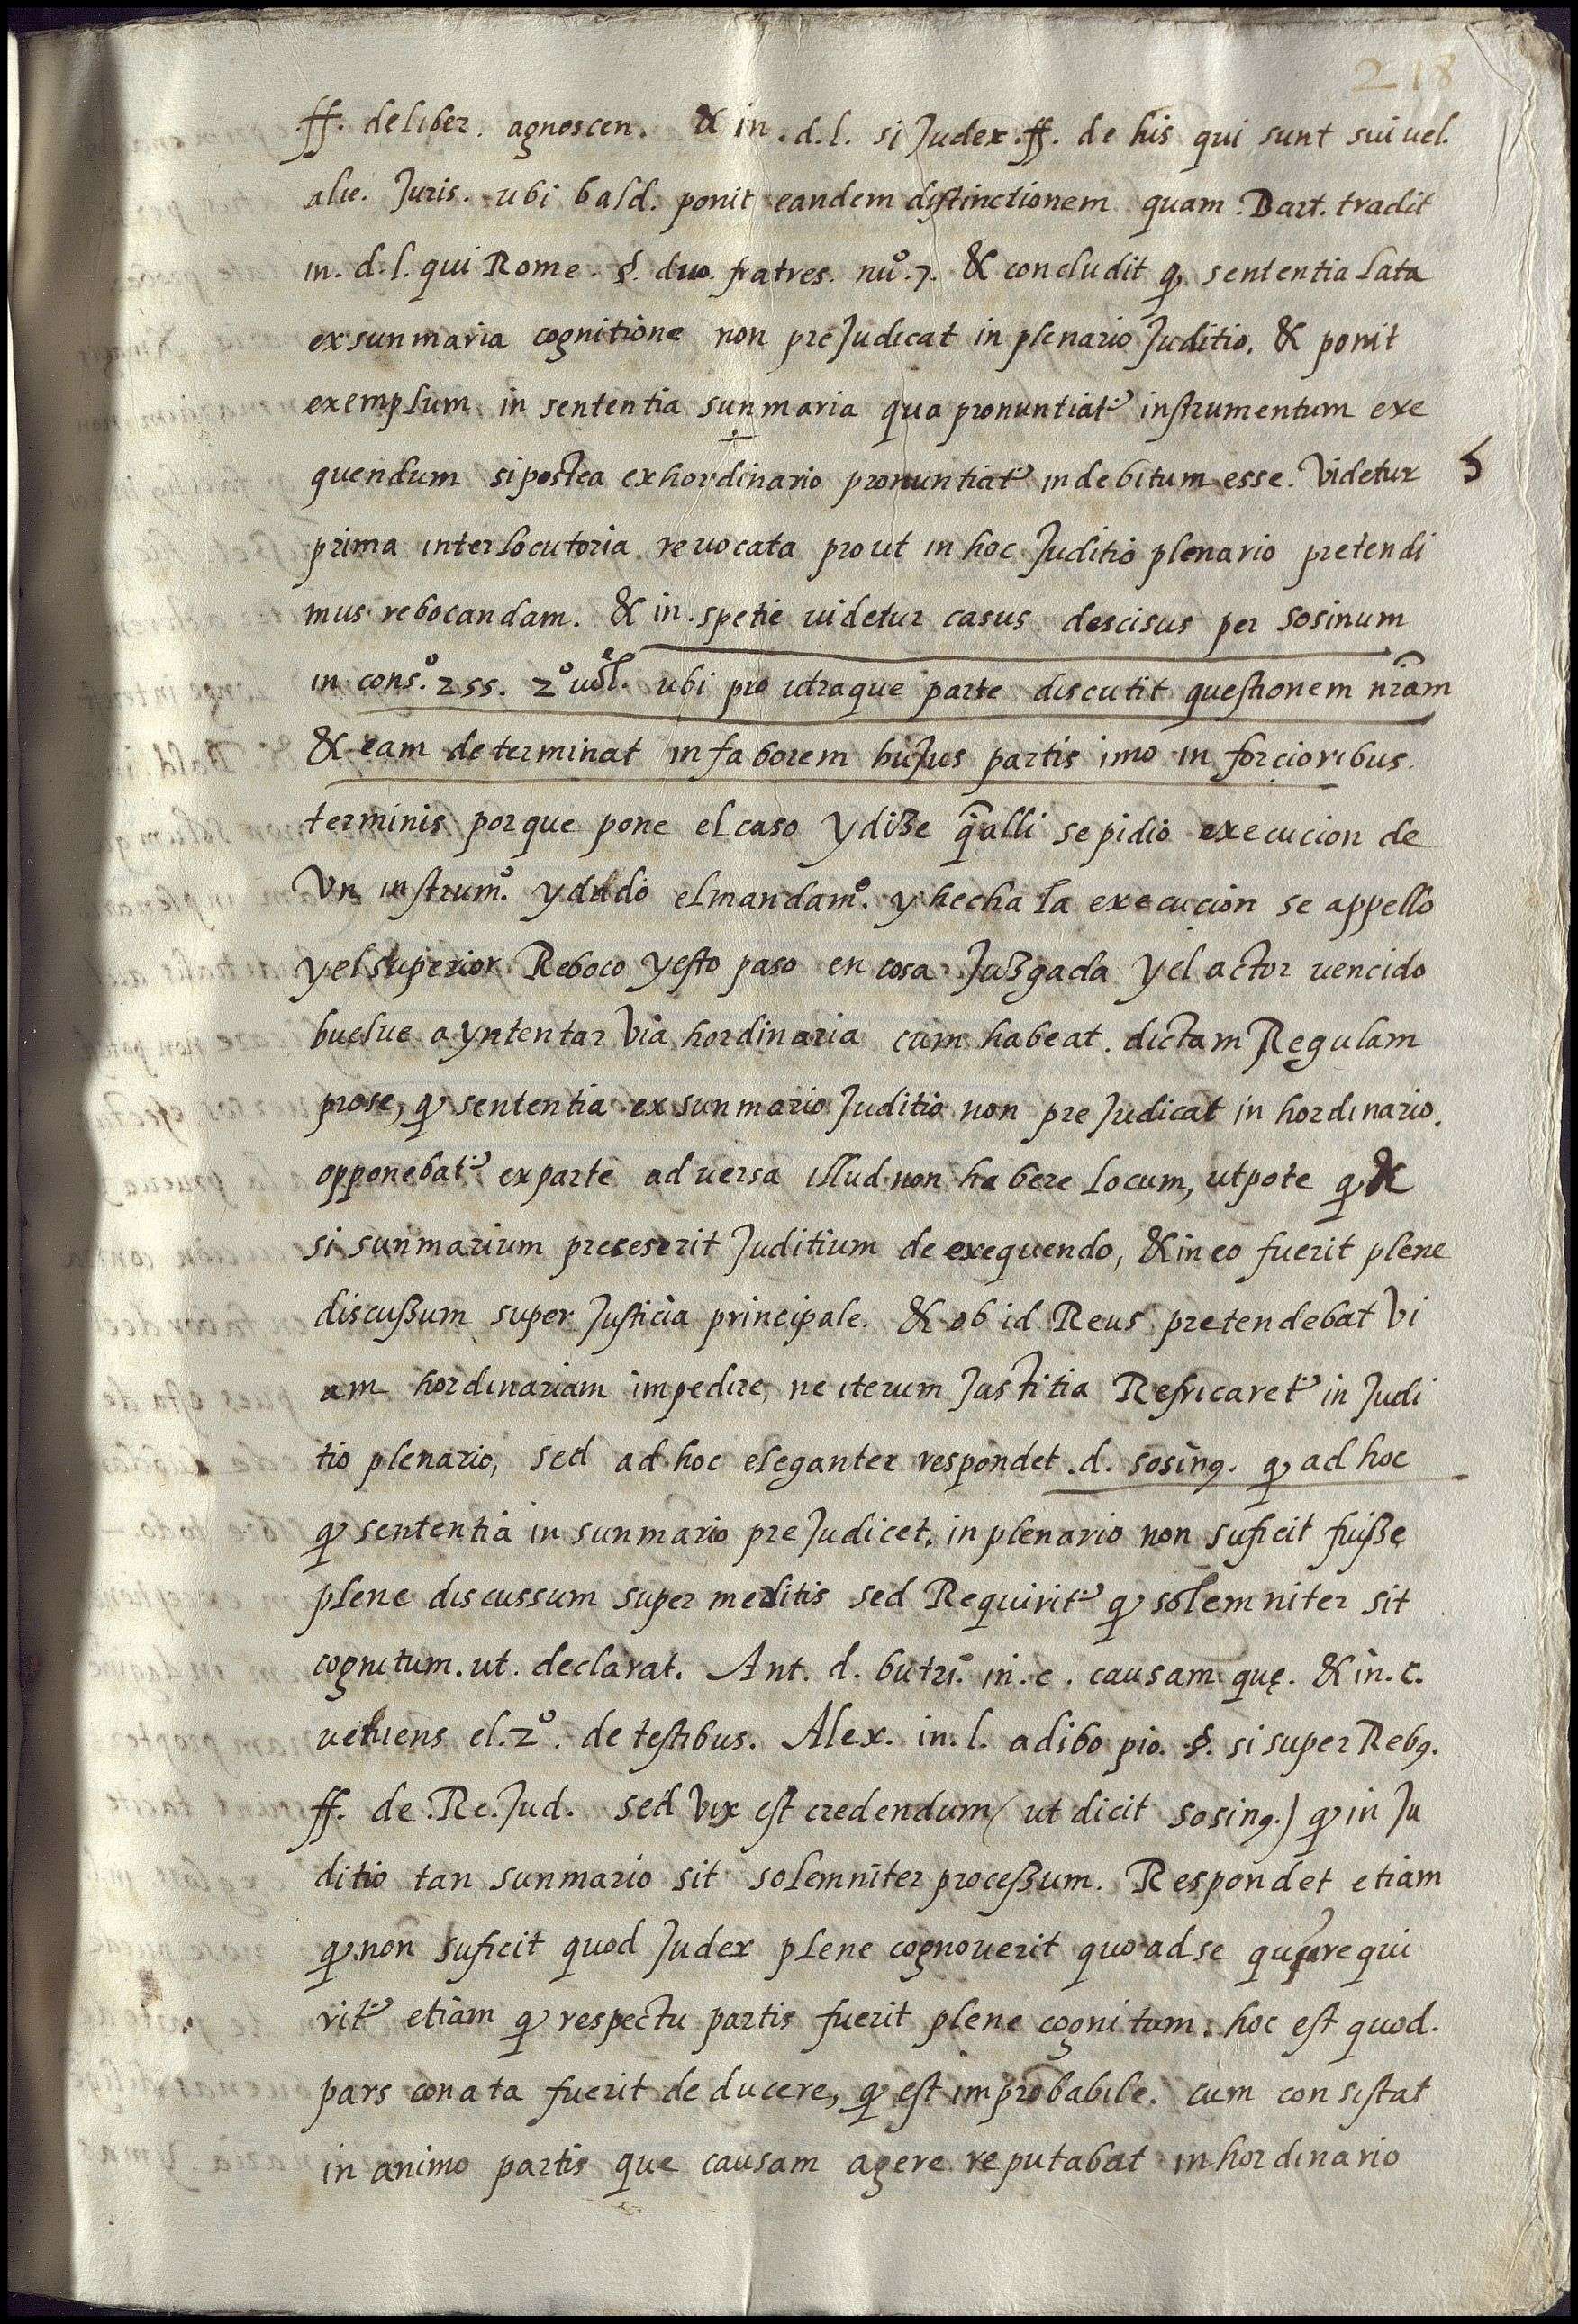 218
ff. de liber. agnoscen. & in. d. l. si Judex. ff. de his qui sunt sui uel.
alie. Juris. ubi bald. ponit eandem distinctionem quam. Bart. tradit
in. d. l. qui Rome. §. duo. fratres. nuº. 7. & concludit q sententia lata
ex sunmaria cognitione non preJudicat in plenario Juditio. & ponit
exemplum in sententia sunmaria qua pronuntiatᵘʳ instrumentum exe
quendum si postea ex hordinario pronuntiatᵘʳ indebitum esse. Videtur 5
prima interlocutoria revocata prout in hoc Juditio plenario pretendi
mus rebocandam. & in. spetie uidetur casus descisus per sosinum
in consº. 255. 2º uol. ubi pro utraque parte discutit questionem nr̃am
& eam determinat in faborem huJus partis imo in forcioribus.
terminis porque pone el caso y dize q̃ alli se pidio execucion de
Vn instrumº. y dudo el mandamº. y hecha la execucion se appello
y el superior Reboco y esto paso en cosa Juzgada y el actor uencido
buelue a yntentar Via hordinaria cum habeat. dictam Regulam
pro se, q sententia ex sunmario Juditio non preJudicat in hordinario.
opponebatᵘʳ ex parte aduersa illud non habere locum, utpote q &
si sunmarium preceserit Juditium de exequendo, & in eo fuerit plene
discußum super Justicia principale. & ob id Reus pretendebat Vi
am hordinariam impedire, ne iterum Justitia Refricaretᵘʳ in Judi
tio plenario, sed ad hoc eleganter respondet. d. sosinꝰ. q ad hoc
q sententia in sunmario preJudicet. in plenario non suficit fuiße
plene discussum super meritis sed Requiritᵘʳ q solemniter sit
cognitum. ut. declarat. Ant. d. butri. in. c. causam quę. & in. c.
ueniens el. 2º. de testibus. Alex. in. l. a dibo pio. §. si super Rebꝰ.
ff. de. Re. Jud. sed Vix est credendum (ut dicit sosinꝰ.) q in Ju
ditio tan sunmario sit solemniter proceßum. Respondet etiam
q non suficit quod Judex plene cognouerit quo ad se requi
ritᵘʳ etiam q respectu partis fuerit plene cognitum. hoc est quod.
pars conata fuerit deducere, q est improbabile. cum consistat
in animo partis que causam agere reputabat in hordinario